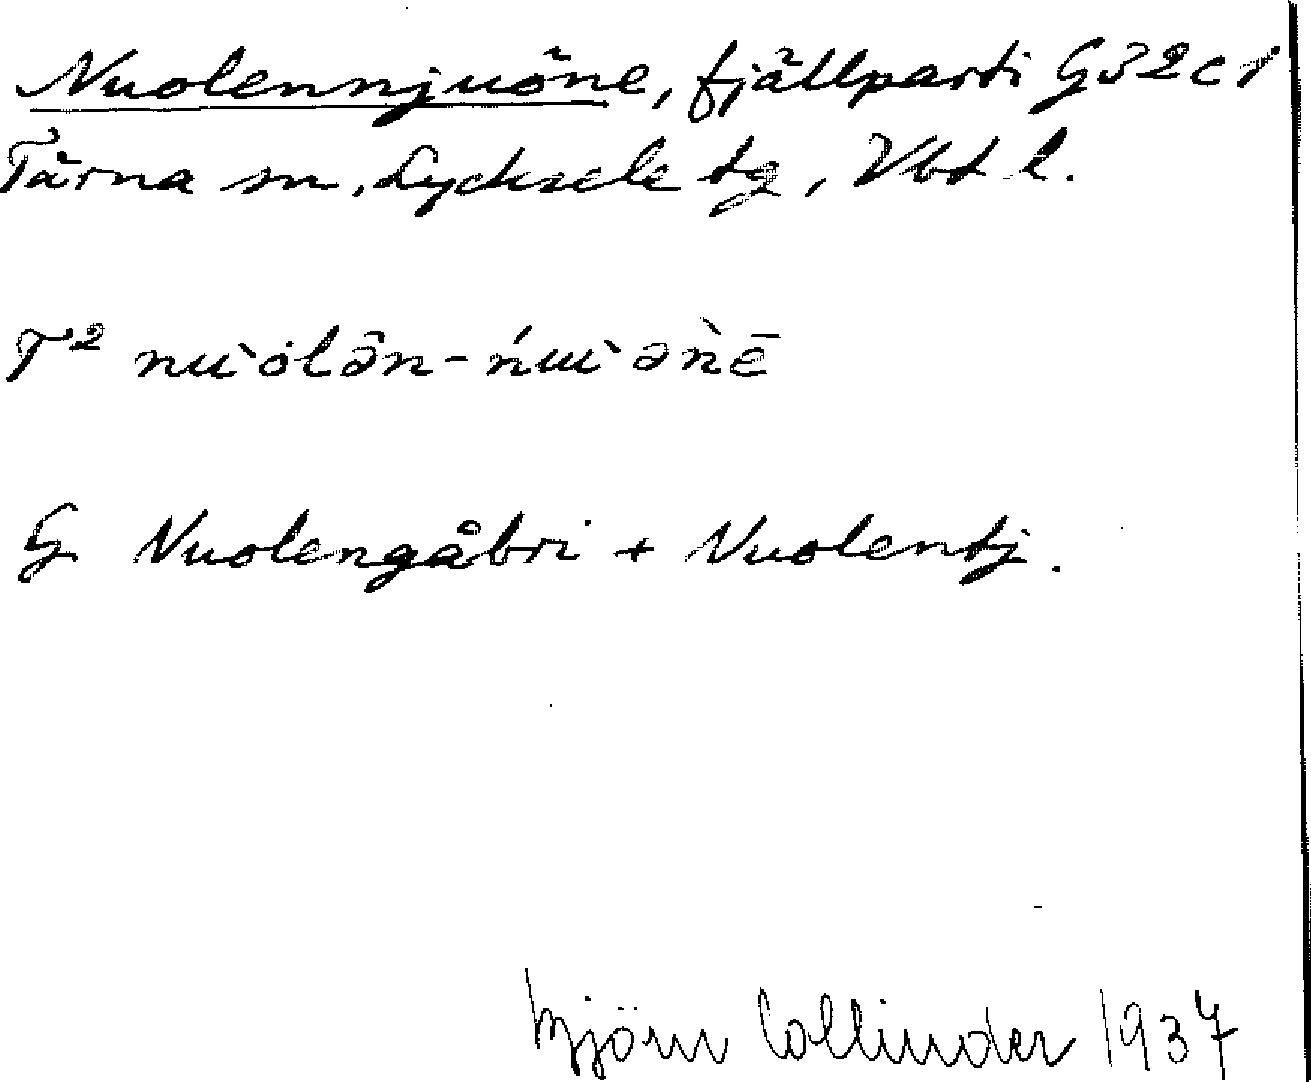 Nuolennjuöne, fjällparti G32c1
Tärna sn, Lycksele tg, Vbt l.
T² nu̇̀ȯlə̂n-ńuu̇̀ənē
G Nuolengåbri + Nuolentj.
Björn Collinder 1937